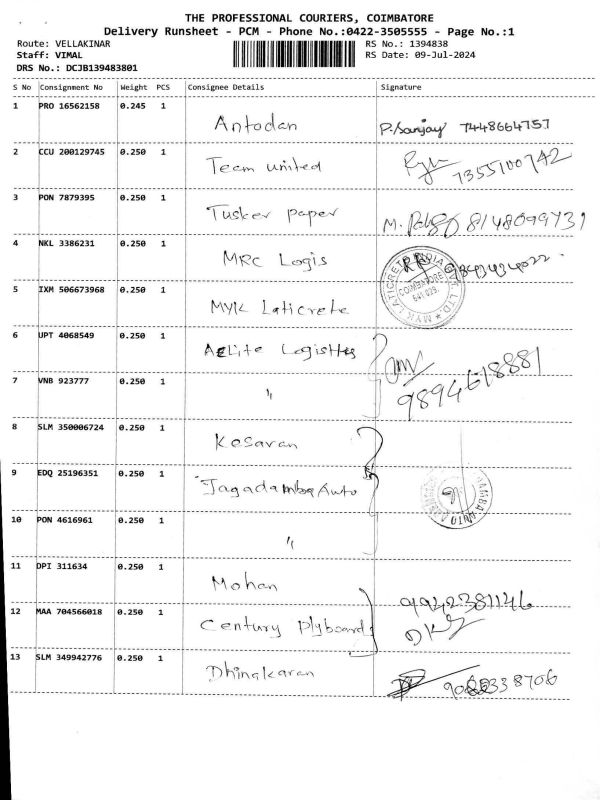 THE PROFESSIONAL COURIERS, COIMBATORE
Delivery Runsheet - PCM - Phone No.:0422-3505555 - Page No.:1
Route: VELLAKINAR RS No.: 1394838
Staff: VIMAL RS Date: 09-Jul-2024
DRS No.: DCJB139483801
S No Consignment No Weight PCS Consignee Details Signature
1 PRO 16562158 0.245 1
Antodan P. Sanjay 7448664757
2 CCU 200129745 0.250 1
Team united 7355100742
3 PON 7879395 0.250 1
Tusker paper M. 8148099731
4 NKL 3386231 0.250 1
MRC Logis
5 IXM 506673968 0.250 1
MYK Laticrete
6 UPT 4068549 0.250 1
7 VNB 923777 0.250 1
" 9894618881
8 SLM 350006724 0.250 1
Kesavan
9 EDQ 25196351 0.250 1
Jagadamba Auto
10 PON 4616961 0.250 1
"
11 DPI 311634 0.250 1
Mohan 9942381146
12 MAA 704566018 0.250 1
Century Plyboards
13 SLM 349942776 0.250 1
Dhinakaran